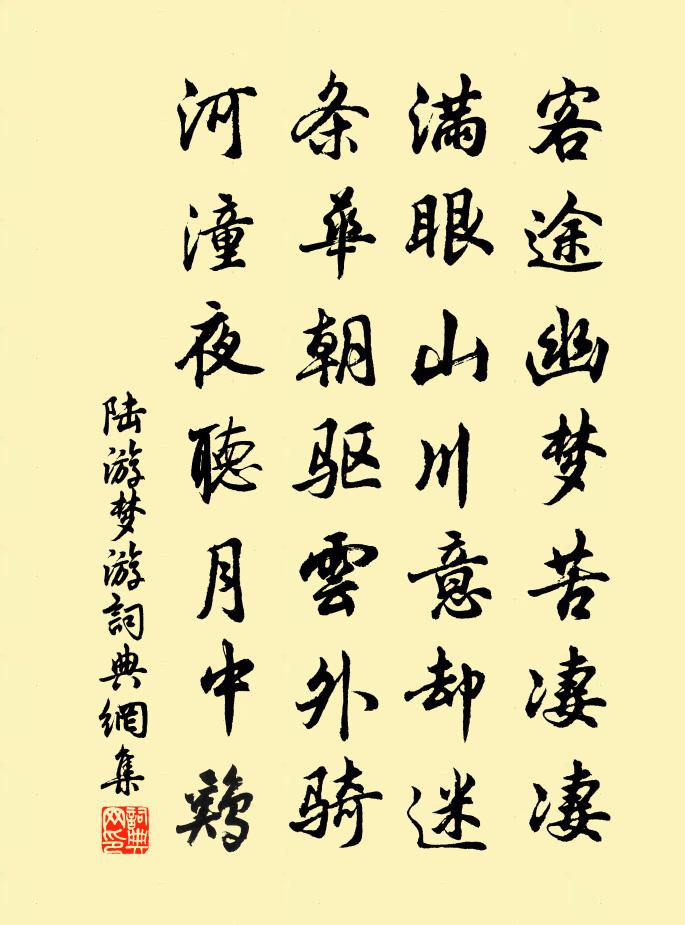 客途幽梦苦凄凄
满眼山川意却迷
条华朝驱雲外骑
河潼夜聽月中鷄
陆游梦游詞典網集
詞典网印